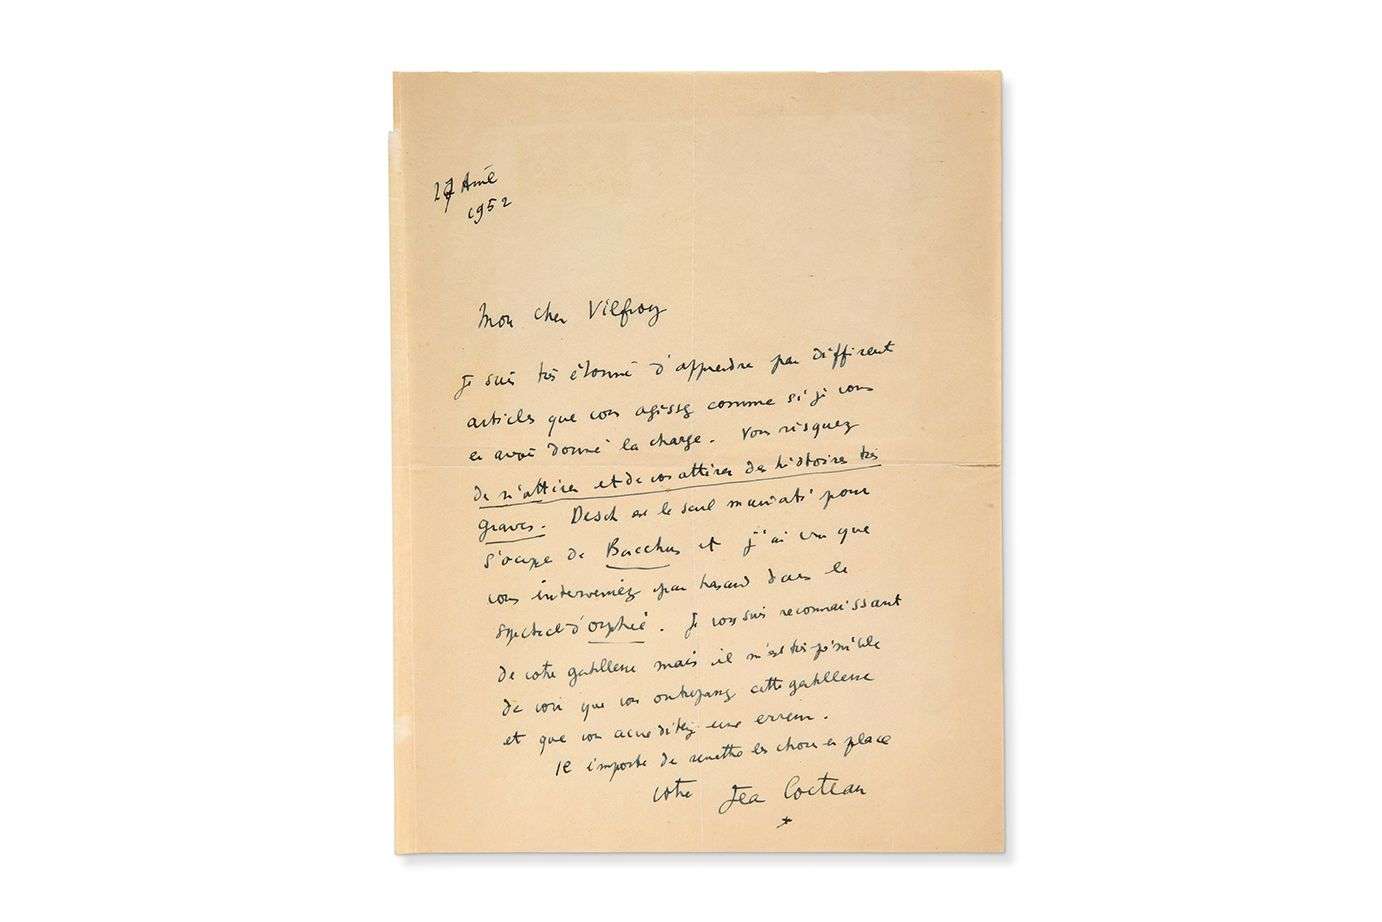 27 Avril
1952
Mon cher Vilfroy
Je suis très étonné d'apprendre par différent
articles que vous agissez comme si je vous
en avais donné la charge. Vous risquez
de m'attirer et de vous attirer des histoires très
graves. Desch est le seul mandaté pour
s'occuper de Bacchus et j'ai cru que
vous interveniez par hasard dans le
spectacle d'Orphée. Je vous suis reconnaissant
de votre gentillesse mais il m'est très pénible
de voir que vous outrepassez cette gentillesse
et que vous accréditez une erreur.
Il importe de remettre les choses en place
votre Jean Cocteau